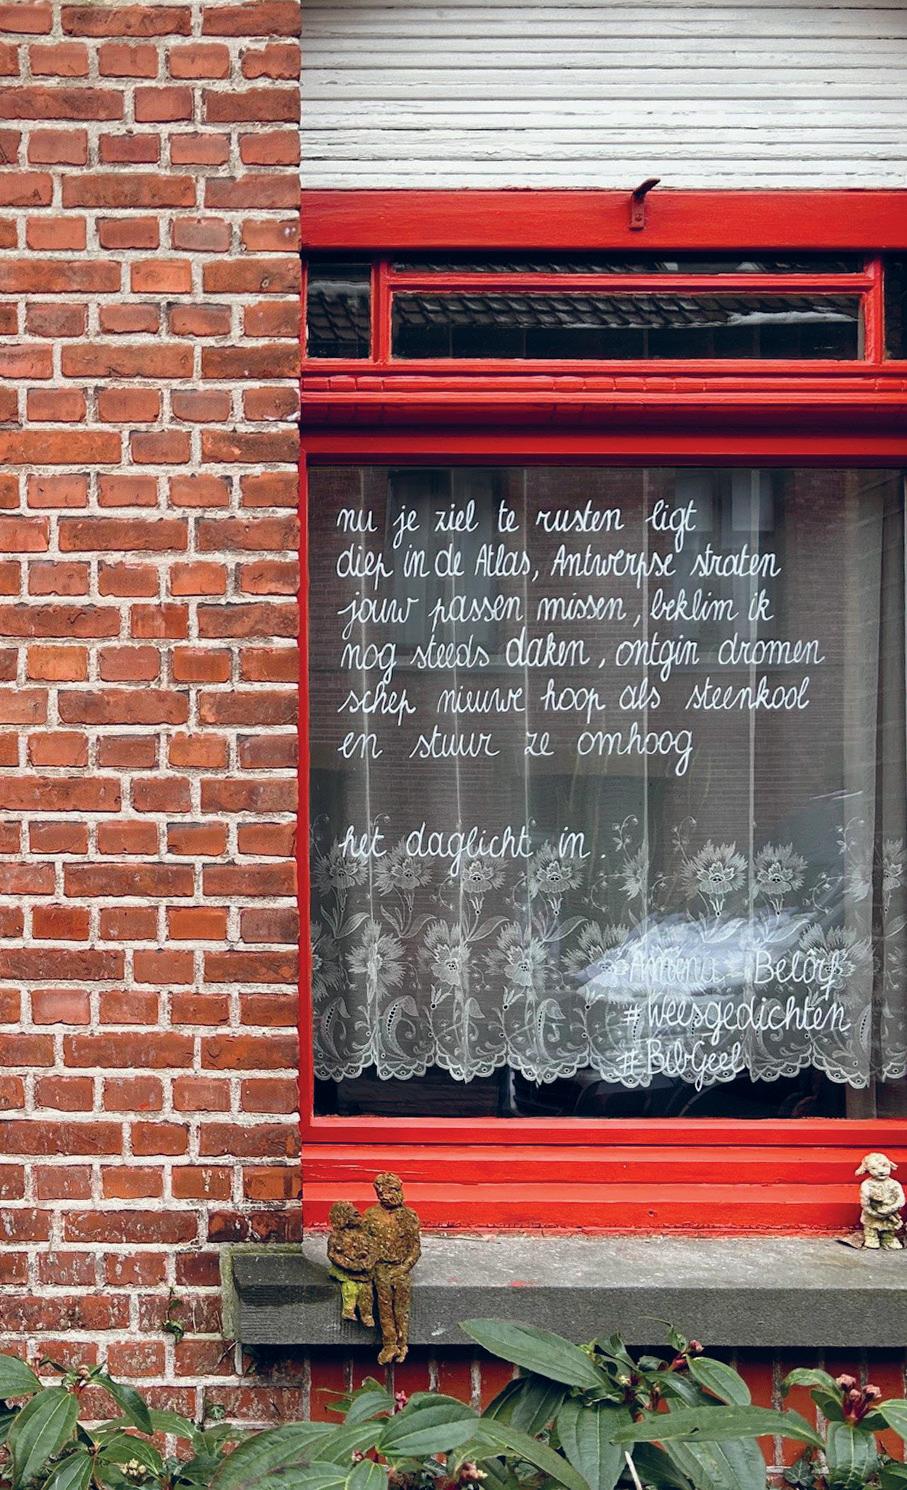 nu je ziel te rusten ligt
diep in de Atlas, Antwerpse straten
jouw passen missen, beklim ik
nog steeds daken, ontgin dromen
schep nieuwe hoop als steenkool
en stuur ze omhoog
het daglicht in.
Amina Belörf
#Weesgedichten
#Bibgeel